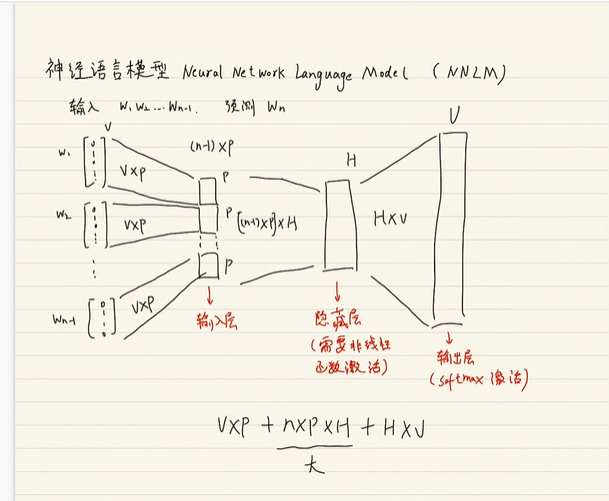 神经语言模型 Neural Network Language Model (NNLM)
输入 W1 W2 ... Wn-1. 预测 Wn
V
W1
V×P
(n-1)×P
P
H
V
W2
V×P
P
[(n-1)×P]×H
H×V
⋮
P
Wn-1
V×P
输入层
隐藏层
(需要非线性
函数激活)
输出层
(softmax 激活)
V×P + n×P×H + H×V
大